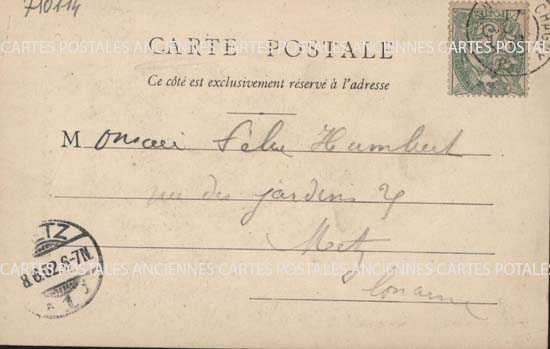 710114
CARTE POSTALE
CARTES POSTALES ANCIENNES CARTES POSTALES ANCIENNES CARTES POSTALES
Ce côté est exclusivement réservé à l'adresse
Monsieur Félix Humbert
rue des jardins
Metz
Lorraine
CARTES POSTALES ANCIENNES CARTES POSTALES ANCIENNES CARTES POTALES